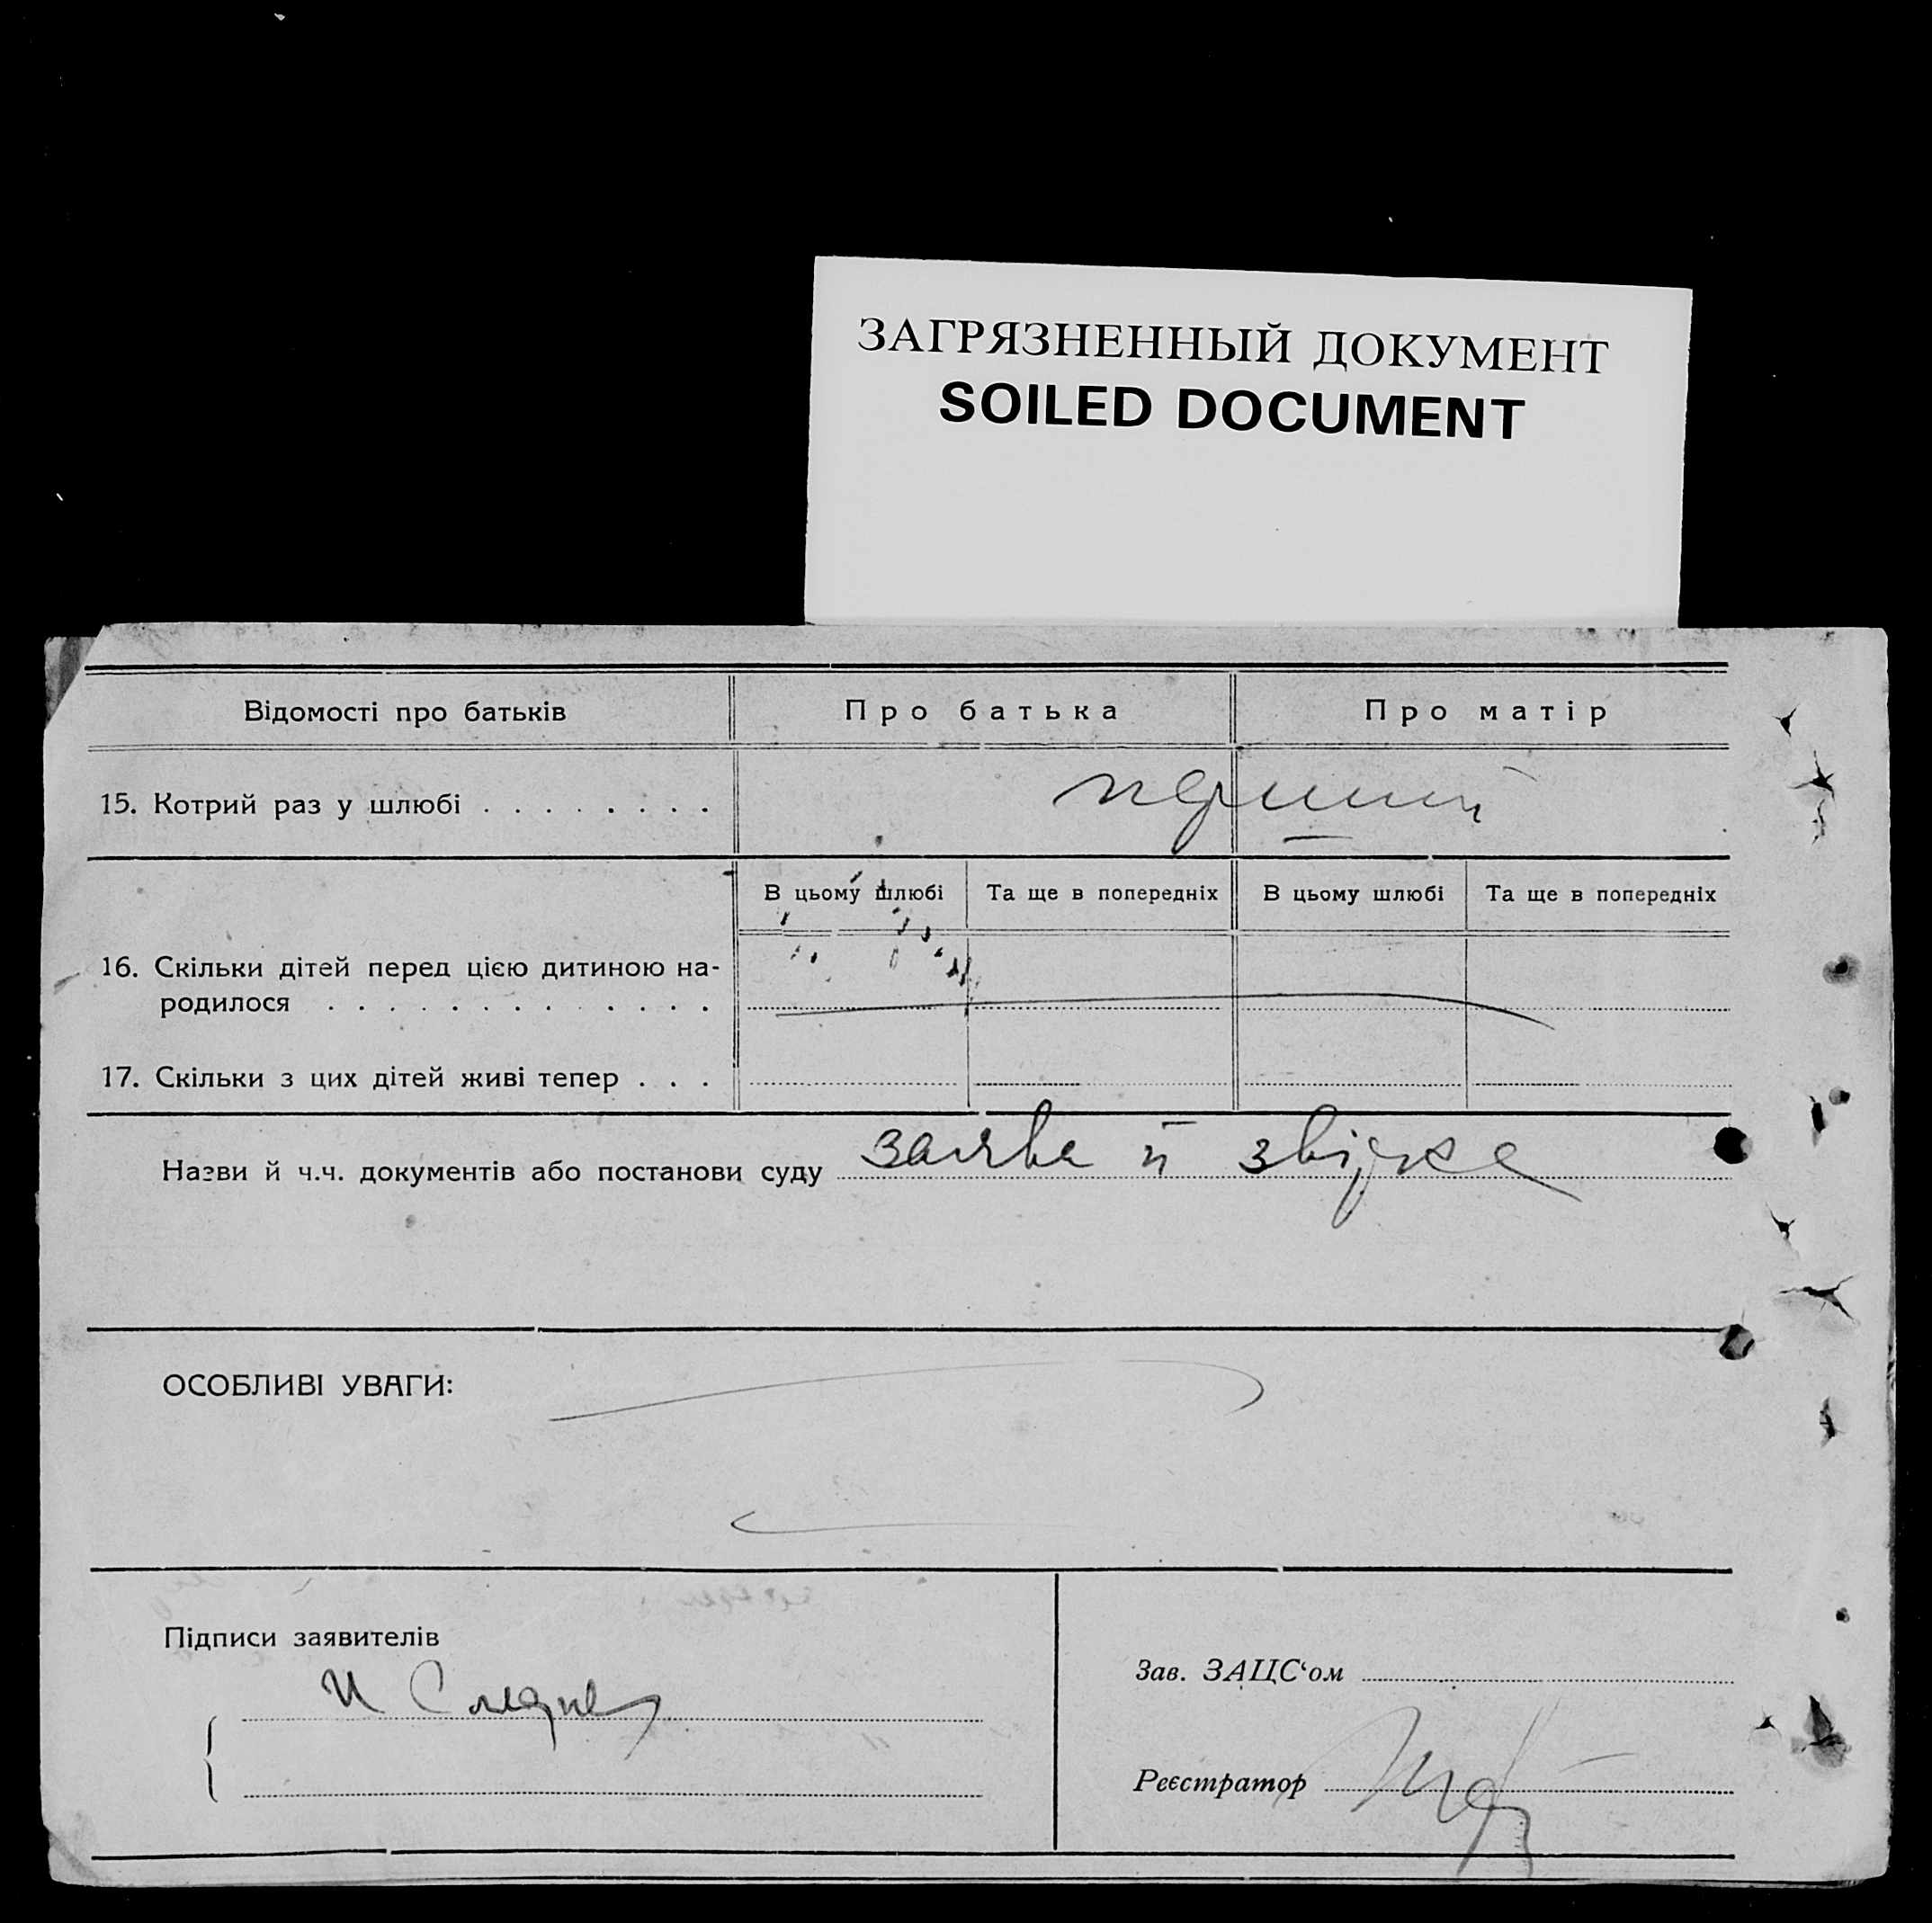 ЗАГРЯЗНЕННЫЙ ДОКУМЕНТ
SOILED DOCUMENT
Відомості про батьків
Про батька
Про матір
15. Котрий раз у шлюбі . . . . . . . .
перший
В цьому шлюбі
Та ще в попередніх
В цьому шлюбі
Та ще в попередніх
16. Скільки дітей перед цією дитиною на-
родилося . . . . . . . . . . . . .
17. Скільки з цих дітей живі тепер . . .
Назви й ч.ч. документів або постанови суду заява й звірка
ОСОБЛИВІ УВАГИ:
Підписи заявителів
Зав. ЗАЦС‘ом
Реєстратор